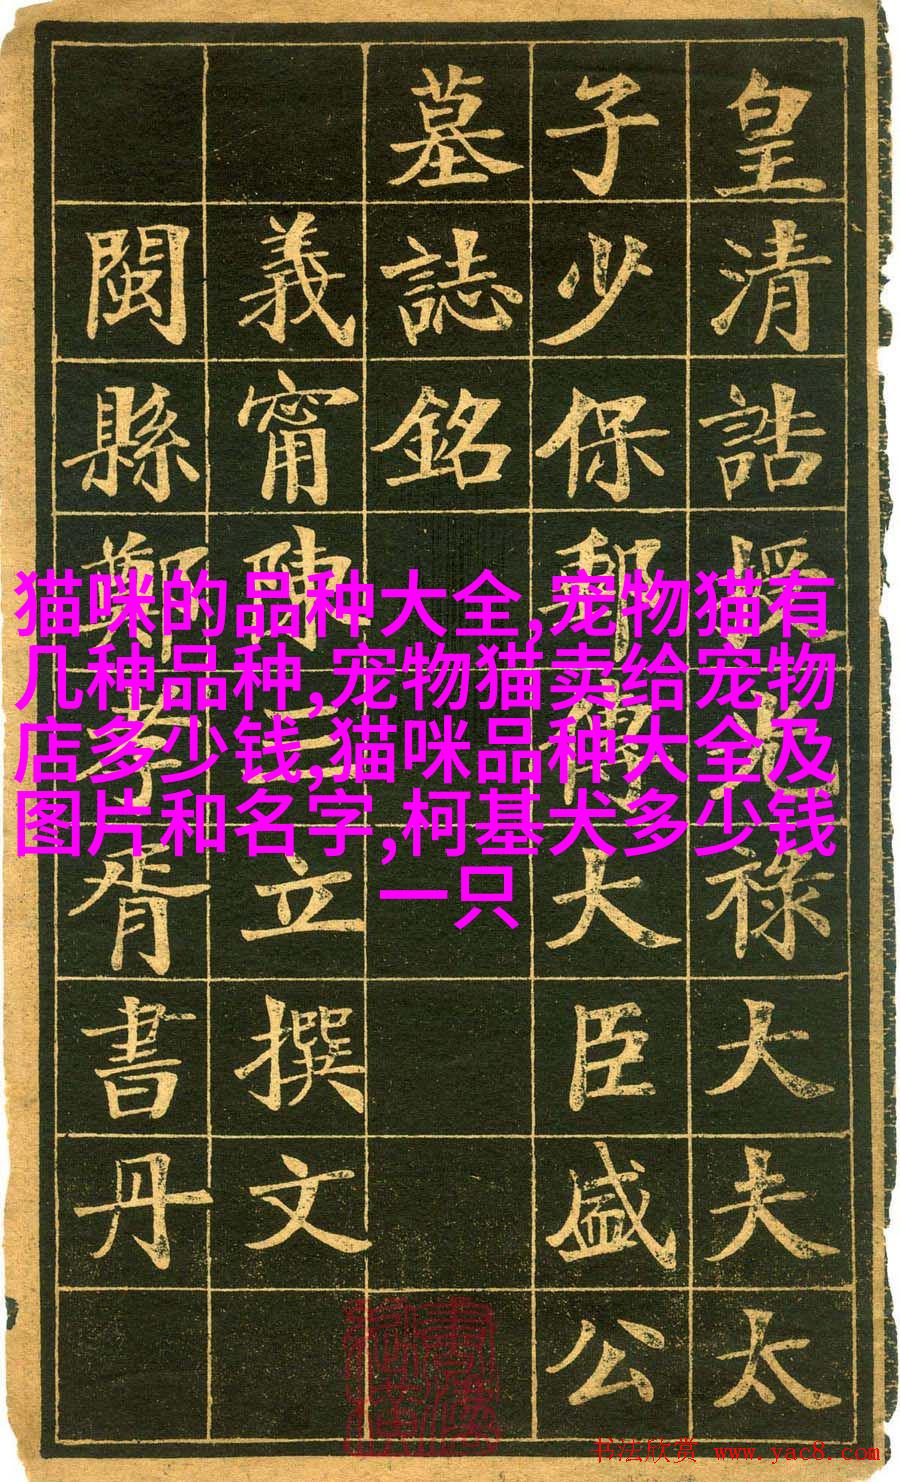 皇清誥授光祿大夫太
子少保郵傳大臣盛公
墓誌銘
義甯陳三立撰文
閩縣鄭孝胥書丹
猫咪的品种大全,宠物猫有
几种品种,宠物猫卖给宠物
店多少钱,猫咪品种大全及
图片和名字,柯基犬多少钱
一只
书法欣赏 www.yac8.com